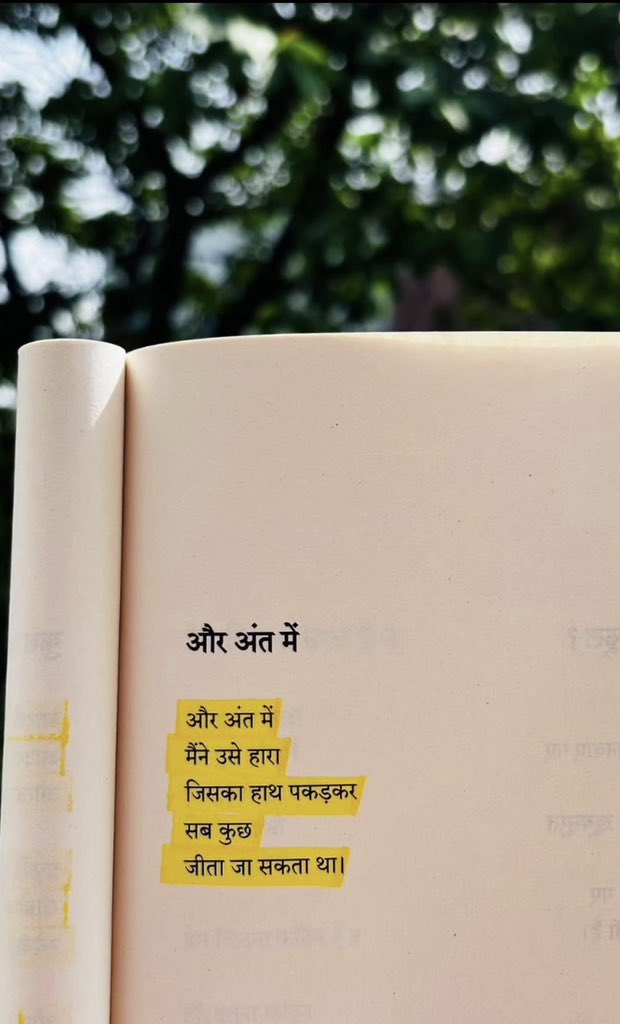 और अंत में
और अंत में
मैंने उसे हारा
जिसका हाथ पकड़कर
सब कुछ
जीता जा सकता था।